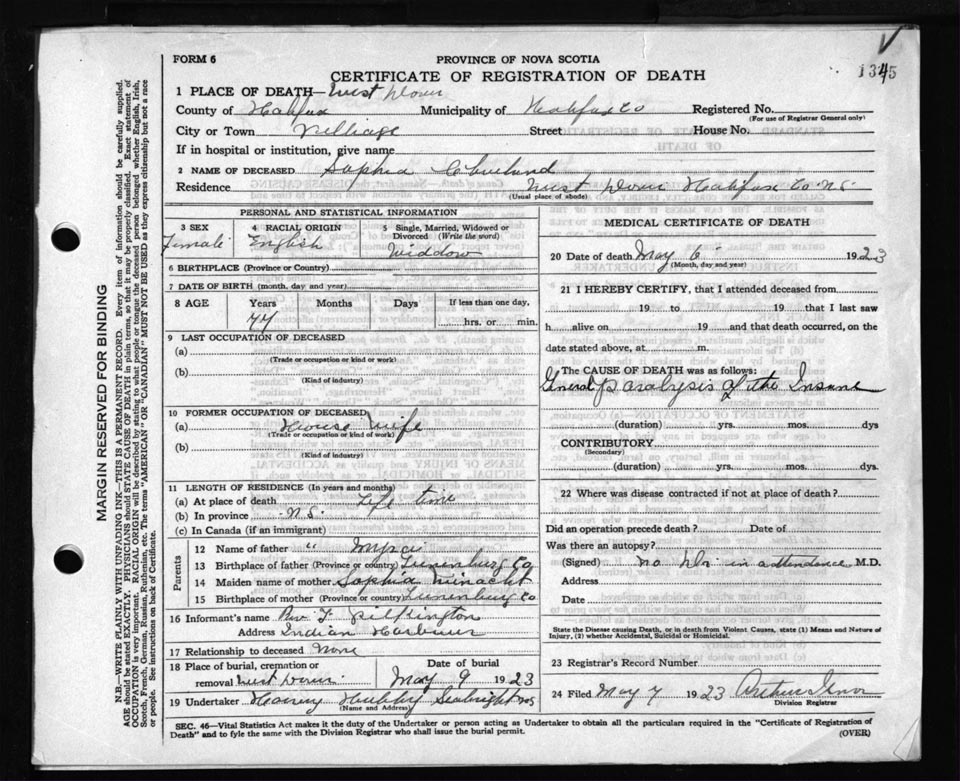 FORM 6
PROVINCE OF NOVA SCOTIA
CERTIFICATE OF REGISTRATION OF DEATH
1345
1 PLACE OF DEATH— West Dover
County of Halifax Municipality of Halifax Co Registered No.
(For use of Registrar General only)
City or Town Villiage Street House No.
If in hospital or institution, give name
2 NAME OF DECEASED Sophia Cleveland
Residence West Dover Halifax Co N.S.
(Usual place of abode)
PERSONAL AND STATISTICAL INFORMATION
3 SEX 4 RACIAL ORIGIN 5 Single, Married, Widowed or Divorced (Write the word)
Female English Widdow
6 BIRTHPLACE (Province or Country)
7 DATE OF BIRTH (month, day and year)
8 AGE Years Months Days If less than one day,
77 hrs. or min.
9 LAST OCCUPATION OF DECEASED
(a)
(Trade or occupation or kind or work)
(b)
(Kind of industry)
10 FORMER OCCUPATION OF DECEASED
(a) House Wife
(Trade or occupation or kind or work)
(b)
(Kind of industry)
11 LENGTH OF RESIDENCE (In years and months)
(a) At place of death Life time
(b) In province N.S.
(c) In Canada (if an immigrant)
Parents
12 Name of father "
13 Birthplace of father (Province or country) Lunenburg Co
14 Maiden name of mother Sophia
15 Birthplace of mother (Province or country) Lunenburg Co
16 Informant's name Rev F. Pilkington
Address Indian Harbour
17 Relationship to deceased None
18 Place of burial, cremation or removal West Dover
Date of burial
May 9 1923
19 Undertaker Hubbly Seabright NS
(Name and Address)
MEDICAL CERTIFICATE OF DEATH
20 Date of death May 6 1923
(Month, day and year)
21 I HEREBY CERTIFY, that I attended deceased from
19 to 19 that I last saw
h alive on 19 and that death occurred, on the
date stated above, at m.
The CAUSE OF DEATH was as follows:
General paralysis of the Insane
(duration) yrs. mos. dys
CONTRIBUTORY
(Secondary)
(duration) yrs. mos. dys.
22 Where was disease contracted if not at place of death?
Did an operation precede death? Date of
Was there an autopsy?
(Signed) no Dr in attendance M.D.
Address
Date
State the Disease causing Death, or in death from Violent Causes, state (1) Means and Nature of
Injury, (2) whether Accidental, Suicidal or Homicidal.
23 Registrar's Record Number
24 Filed May 7 1923 Arthur
Division Registrar
SEC. 46—Vital Statistics Act makes it the duty of the Undertaker or person acting as Undertaker to obtain all the particulars required in the "Certificate of Registration of
Death" and to fyle the same with the Division Registrar who shall issue the burial permit.
(OVER)
MARGIN RESERVED FOR BINDING
N.B.—WRITE PLAINLY WITH UNFADING INK—THIS IS A PERMANENT RECORD. Every item of information should be carefully supplied.
AGE should be stated EXACTLY. PHYSICIANS should STATE CAUSE OF DEATH in plain terms, so that it may be properly classified. Exact statement of
OCCUPATION is very important. RACIAL ORIGIN will be described by stating to what people or tongue the deceased person belonged whether English, Irish,
Scotch, French, German, Russian, Ruthenian, etc. The terms "AMERICAN" or "CANADIAN" MUST NOT BE USED as they express citizenship but not a race
or people. See instructions on back of Certificate.